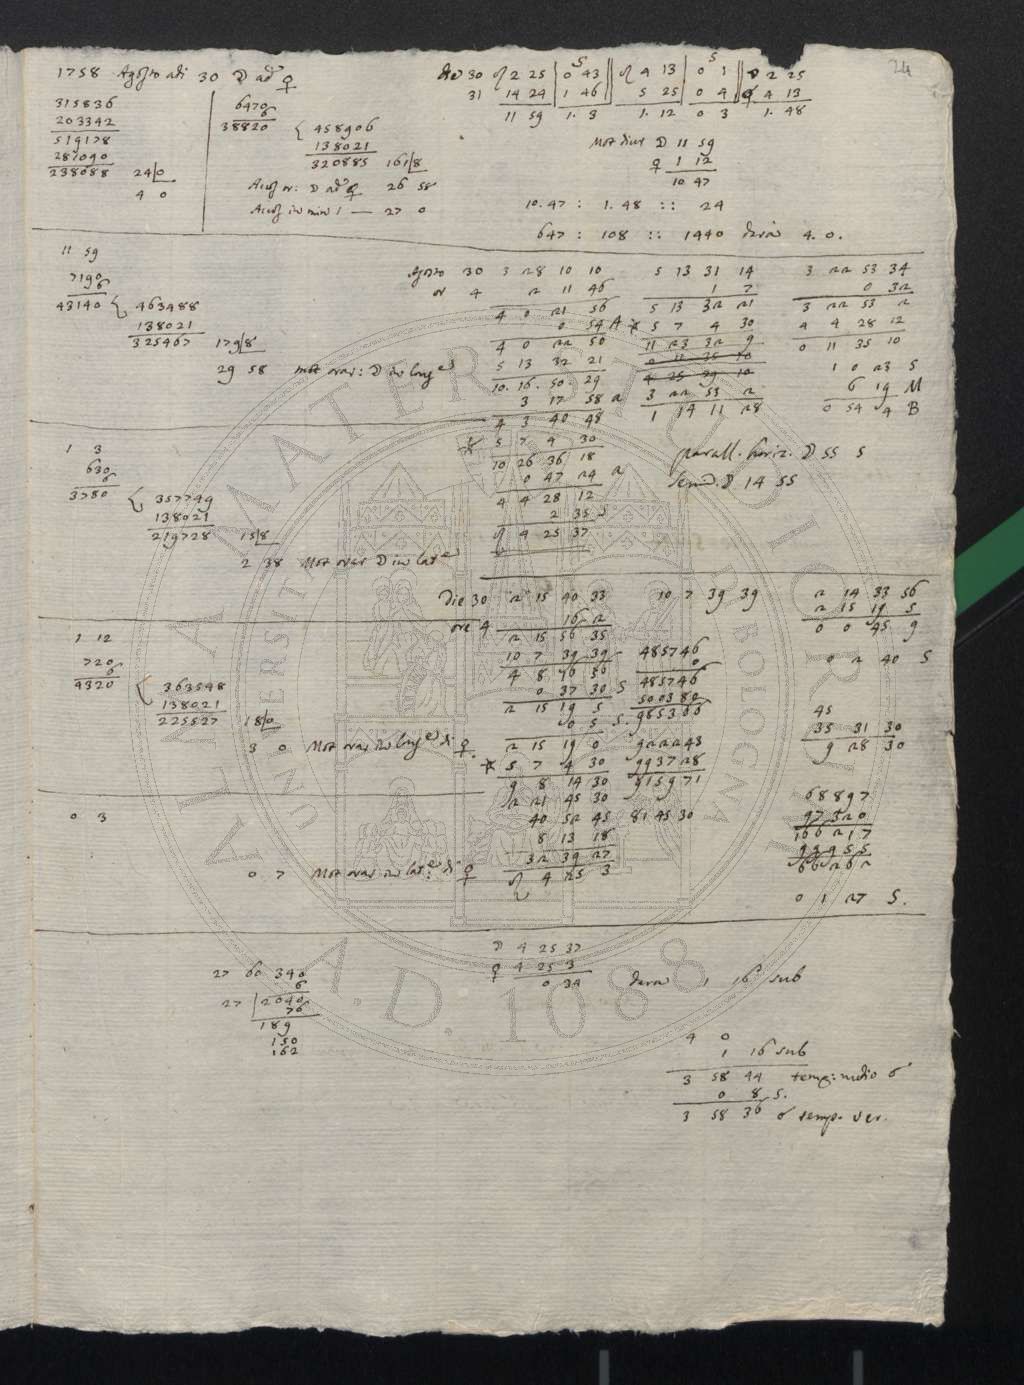 24
1758 Agosto adi 30 ☽ ad ♀
315836
203342
519178
287090
238088 24|0
4 0
6470
6
38820
458906
138021
320885 161|8
Accel or: ☽ ad ♀ 26 58
Accel in min 1 — 27 0
die 30 ♌ 2 25 | 0 43 || ♌ 4 13 | 0 1 || ☽ 2 25
S S
31 14 24 | 1 46 5 25 | 0 4 ♀ 4 13
11 59 1. 3 1. 12 0 3 1. 48
Mot diur ☽ 11 59
♀ 1 12
10 47
10. 47 : 1. 48 :: 24
647 : 108 :: 1440 4. 0.
11 59
7190
6
43140
463488
138021
325467 179|8
29 58 mot orar: ☽ in long
Agosto 30 3 28 10 10 5 13 31 14 3 22 53 34
or 4 2 11 46 1 7 0 32
4 0 21 56 5 13 32 21 3 22 53 2
0 54 A 5 7 4 30 4 4 28 12
4 0 22 50 11 23 32 9 0 11 35 10
5 13 32 21 0 11 35 10 1 0 23 S
10. 16. 50. 29 4 25 29 10 6 19 M
3 17 58 a 3 22 53 2 0 54 4 B
4 3 40 48 1 14 11 28
5 7 4 30
10 26 36 18
0 47 24 a
4 4 28 12
2 35 S
♌ 4 25 37
parall. horiz. ☽ 55 5
Semid. ☽ 14 55
1 3
630
6
3780
357749
138021
219728 15|8
2 38 Mot orar ☽ in lat
Die 30 2 15 40 33 10 7 39 39 2 14 33 56
ore 4 16 2 2 15 19 5
2 15 56 35 0 0 45 9
10 7 39 39 485746
4 8 16 56 0 0 2 40 S
0 37 30 S 485746
2 15 19 5 500380
0 5 S. 985366 45
35 31 30
2 15 19 0 922243 9 28 30
5 7 4 30 993728
9 8 14 30 915971
2 21 45 30 68897
40 52 45 81 45 30 97320
8 13 18 166217
32 39 27 99955
♌ 4 25 3 66262
0 1 27 S.
1 12
720
6
4320
363548
138021
225527 18|0
3 0 Mot orar in long di ♀.
0 3
0 7 Mot orar in lat: di ♀
☽ 4 25 37
♀ 4 25 3
0 34 1 16 sub
27 60 340
6
27 |2040
76
189
150
162
4 0
1 16 sub
3 58 44 temp: medio ☌
0 8 S.
3 58 36 ☌ temp. ver.